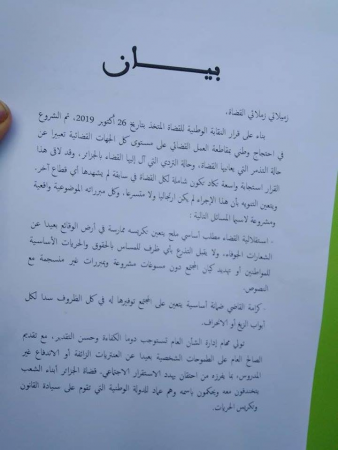 بيـــــان
زميلاتي زملائي القضاة،
بناء على قرار النقابة الوطنية للقضاة المتخذ بتاريخ 26 أكتوبر 2019، تم الشروع
في احتجاج وطني بمقاطعة العمل القضائي على مستوى كل الجهات القضائية تعبيرا عن
حالة التذمر التي يعانيها القضاة، وحالة التردي التي آل إليها القضاء بالجزائر، وقد لاقى هذا
القرار استجابة واسعة تكاد تكون شاملة لكل القضاة في سابقة لم يشهدها أي قطاع آخر.
ويتعين التنويه بأن هذا الإجراء لم يكن ارتجاليا ولا متسرعا، وكل مبرراته الموضوعية واقعية
ومشروعة لاسيما المسائل التالية :
- استقلالية القضاء مطلب أساسي ملح يتعين تكريسه ممارسة في أرض الواقع بعيدا عن
الشعارات الجوفاء، ولا يقبل التذرع بأي ظرف للمساس بالحقوق والحريات الأساسية
للمواطنين أو تهديد كيان المجتمع دون مسوغات مشروعة ومبررات غير منسجمة مع
النصوص.
- كرامة القاضي ضمانة أساسية يتعين على المجتمع توفيرها له في كل الظروف سدا لكل
أبواب الزيغ أو الانحراف.
- تولي مهام إدارة الشأن العام تستوجب دوما الكفاءة وحسن التقدير، مع تقديم
الصالح العام على الطموحات الشخصية بعيدا عن العنتريات الزائفة أو الاندفاع غير
المدروس، بما يفرزه من احتقان يهدد الاستقرار الاجتماعي. قضاة الجزائر أبناء الشعب
يتخندقون معه ويحكمون باسمه وهم عماد للدولة الوطنية التي تقوم على سيادة القانون
وتكريس الحريات.